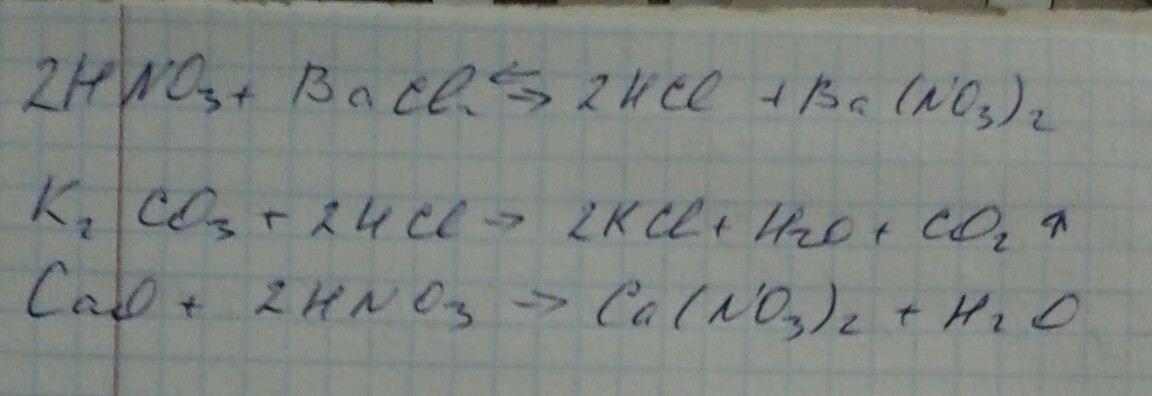 2HNO₃ + BaCl₂ ⇆ 2HCl + Ba(NO₃)₂
K₂CO₃ + 2HCl → 2KCl + H₂O + CO₂ ↑
CaO + 2HNO₃ → Ca(NO₃)₂ + H₂O